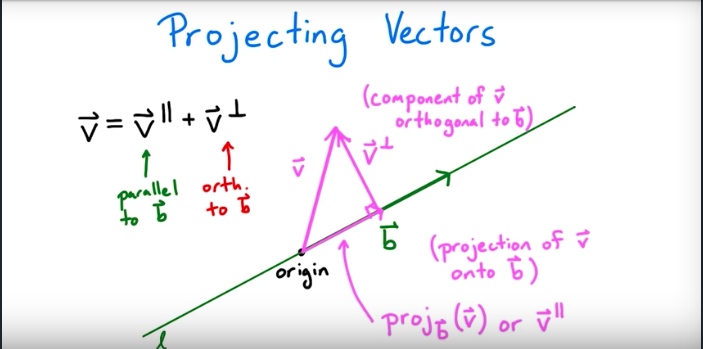 Projecting Vectors
v⃗ = v⃗^∥ + v⃗^⊥
parallel
to b⃗
orth.
to b⃗
(component of v⃗
orthogonal to b⃗)
v⃗
v⃗^⊥
b⃗
origin
(projection of v⃗
onto b⃗)
proj_b⃗(v⃗) or v⃗^∥
l